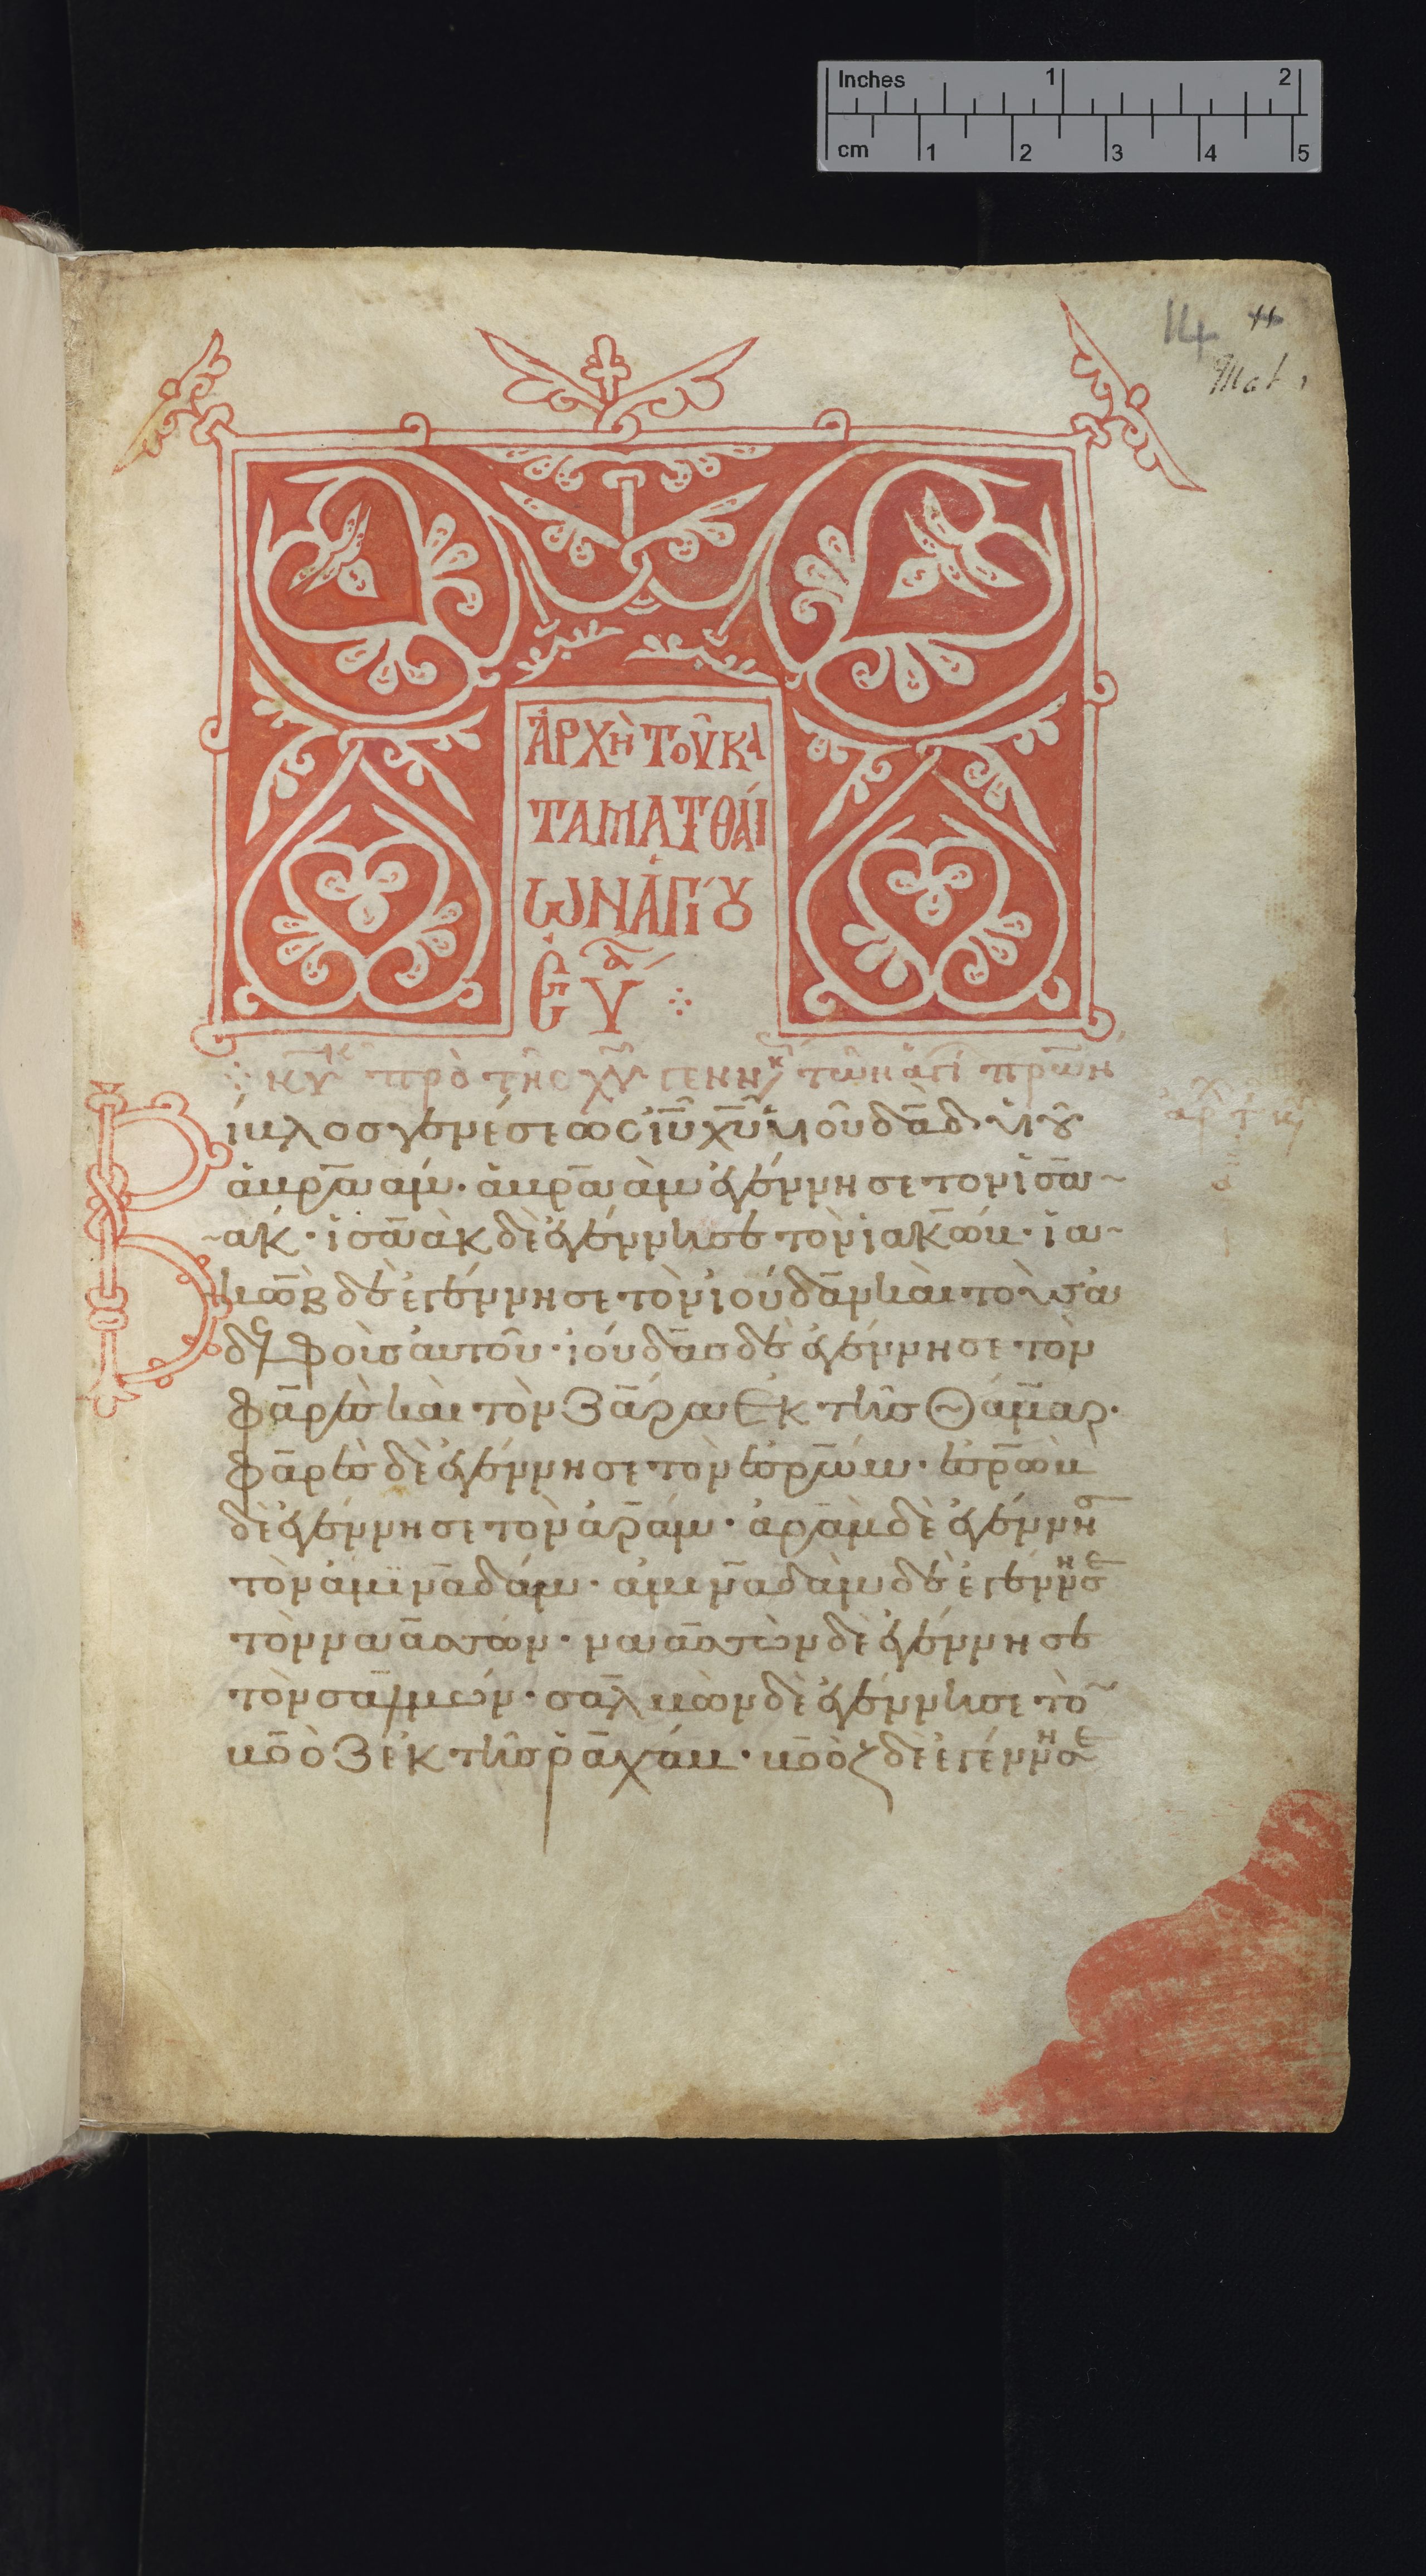 Inches 1 2
cm 1 2 3 4 5
14
Mat 1
ἈΡΧῊ ΤΟΥ͂ ΚΑ
ΤΑ ΜΑΤΘΑΙ
ΩΝ ἉΓΊΟΥ
ΕΥΑ
κυ πρὸ τῆς χυ γενν τῶν ἁγί πρων
Βίβλος γενέσεως ιυ χυ υἱοῦ δαδ υἱοῦ
ἀβρααμ· ἀβραὰμ ἐγέννησε τον ἰσα
ακ· ἰσαὰκ δὲ ἐγέννησε τὸν ἰακώβ· ἰα
κὼβ δὲ ἐγέννησε τὸν ἰούδαν καὶ τοὺς ἀ
δελφοὺς αὐτοῦ· ἰούδας δὲ ἐγέννησε τὸν
φαρὲς καὶ τὸν ζάρα ἐκ τῆς Θάμαρ·
φαρὲς δὲ ἐγέννησε τὸν ἐσρώμ· ἐσρὼμ
δὲ ἐγέννησε τὸν ἀράμ· ἀρὰμ δὲ ἐγέννησ
τὸν ἀμϊναδάμ· ἀμιναδὰμ δὲ ἐγέννησε
τὸν ναασσών· ναασσὼν δὲ ἐγέννησε
τὸν σαλμών· σαλμὼν δὲ ἐγέννησε τὸ
βοὸζ ἐκ τῆς ῥαχάβ· βοὸζ δὲ ἐγέννησε